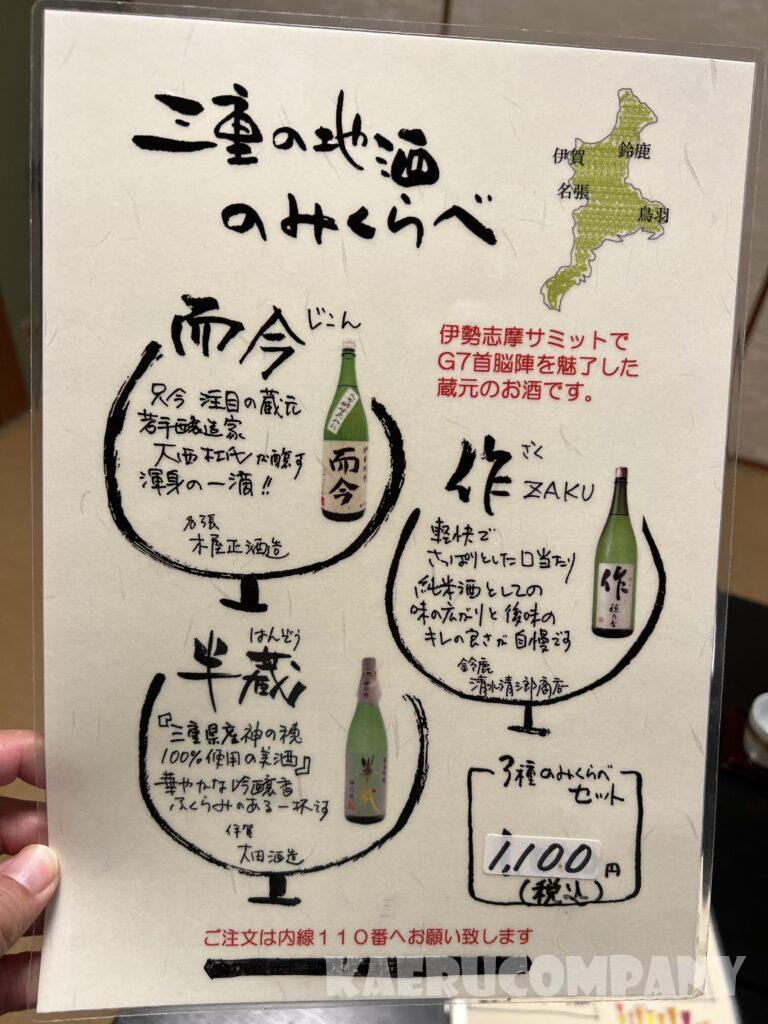 三重の地酒
のみくらべ
伊賀
鈴鹿
名張
鳥羽
而今
じこん
只今 注目の蔵元
若手醸造家
大西杜氏が醸す
渾身の一滴!!
名張
木屋正酒造
而今
伊勢志摩サミットで
G7首脳陣を魅了した
蔵元のお酒です。
作
ざく
ZAKU
軽快で
さっぱりとした口当たり
純米酒としての
味の広がりと後味の
キレの良さが自慢です
鈴鹿
清水清三郎商店
作
穂乃智
半蔵
はんぞう
『三重県産神の穂
100%使用の美酒』
華やかな吟醸香
ふくらみのある一杯です
伊賀
大田酒造
半蔵
神の穂
3種のみくらべ
セット
1,100円
(税込)
ご注文は内線110番へお願い致します
KAERUCOMPANY